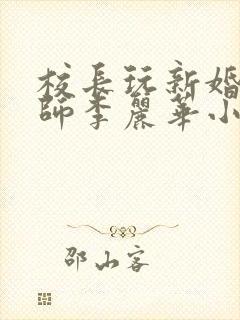 校長玩新婚
師李麗華小
邵山客